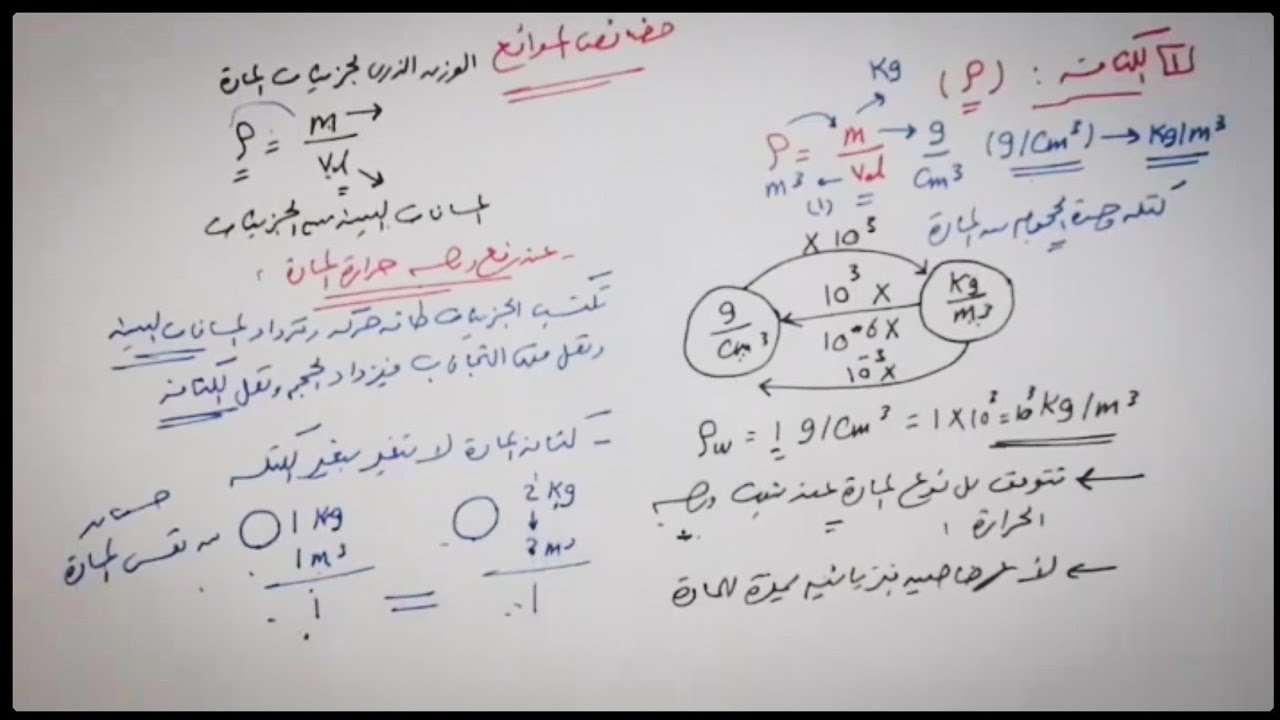 خصائص الموائع
1 الكثافة : (ρ)
Kg
ρ = m/Vol → g/Cm³ (g/Cm³) → Kg/m³
m³ ←
(1)
كتلة وحدة الحجوم من المادة
X 10³
g/Cm³
10³ X
10⁻⁶ X
Kg/m³
10⁻³ X
ρw = 1 g/Cm³ = 1 X 10³ = 10³ Kg/m³
← تتوقف على نوع المادة عند ثبوت درجة
الحرارة
← لأنها خاصية فيزيائية مميزة للمادة
الوزن الذرى لجزيئات المادة
ρ = m/Vol →
المسافات البينية بين الجزيئات
- عند رفع درجة حرارة المادة :
تكتسب الجزيئات طاقة حركة وتزداد المسافات البينية
وتقل قوى التجاذب فيزداد الحجم وتقل الكثافة
- كثافة المادة لا تتغير بتغير الكتلة
2 Kg
↓
2 m³
1
=
1 Kg
1 m³
1
من نفس المادة